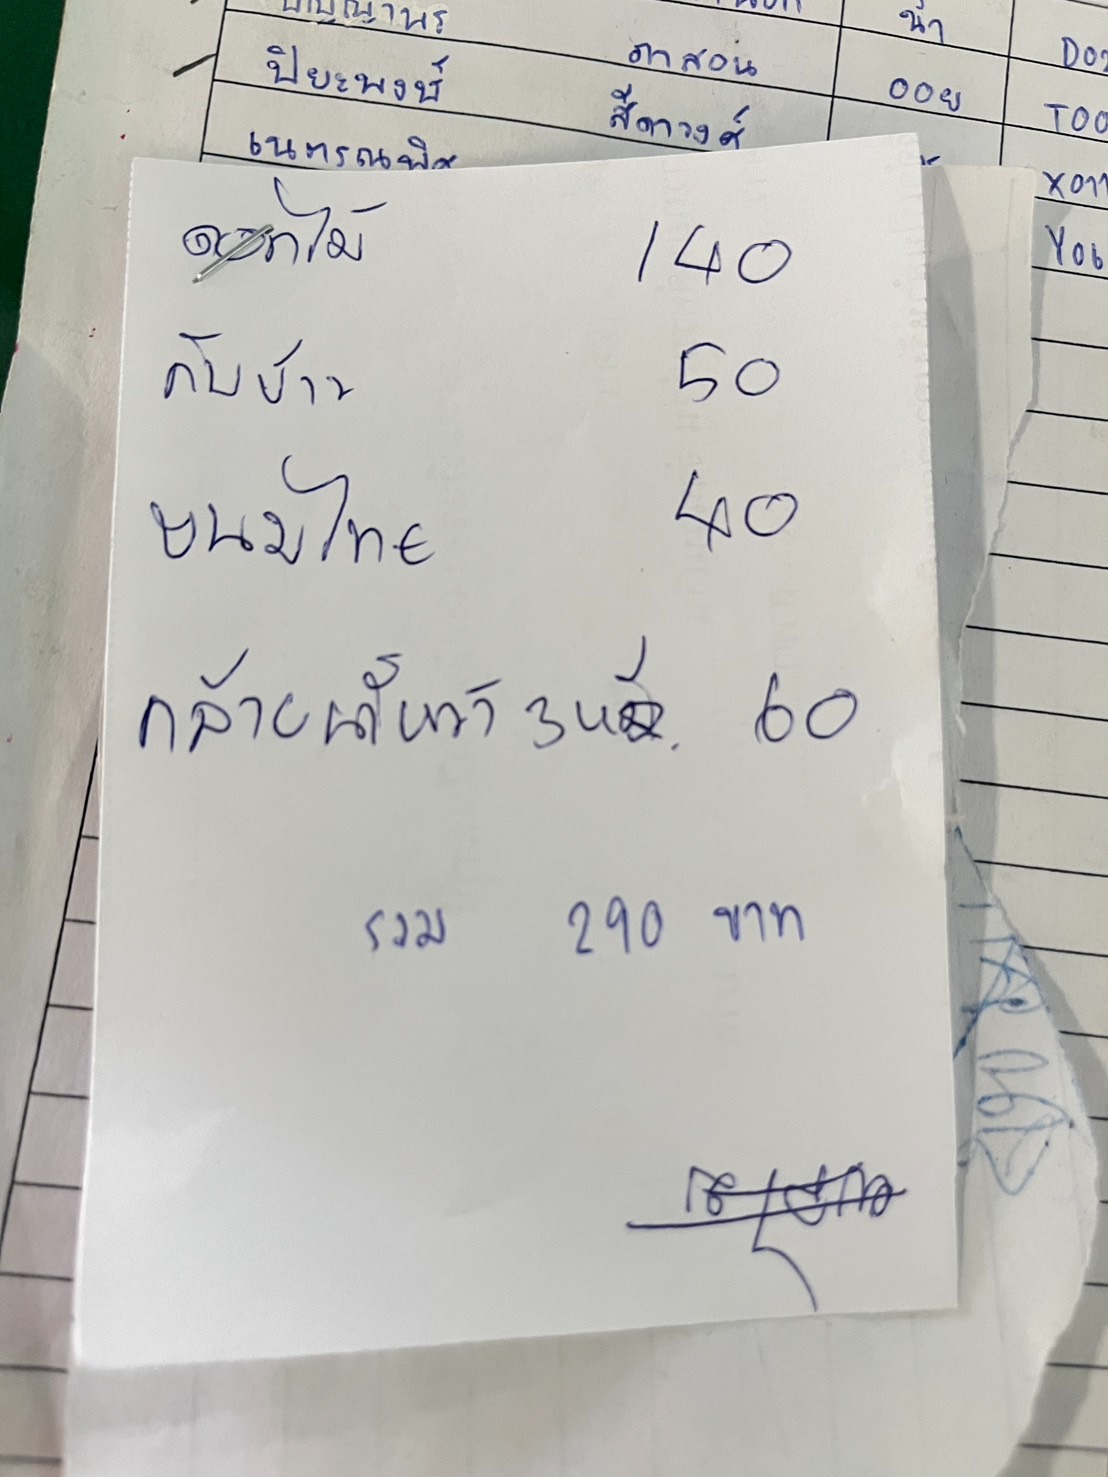 ปิยะพงษ์ ภาสอน ออย
เนตรณพิศ สีดาวงศ์
ดอกไม้ 140
กับข้าว 50
ขนมไทย 40
กล้วยน้ำหว้า 3 หวี. 60
รวม 290 บาท